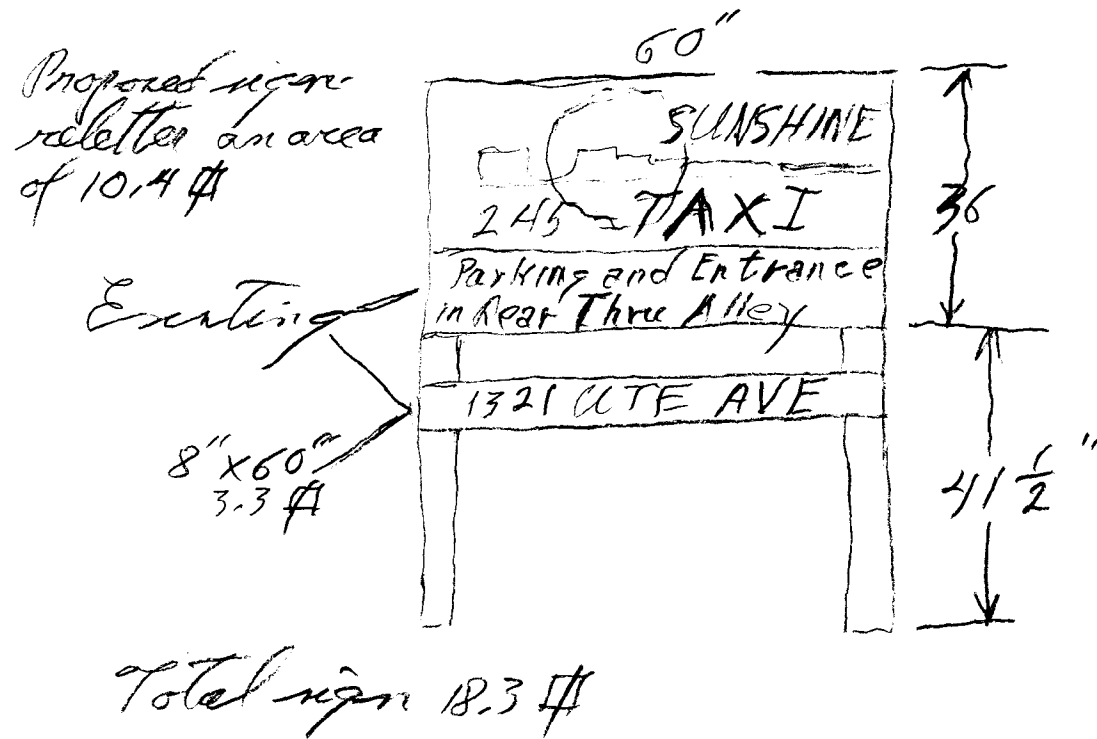 60"
Proposed sign
reletter an area
of 10.4 ⌗
SUNSHINE
TAXI
245
36
Parking and Entrance
in Rear Thru Alley
Existing
1321 UTE AVE
8" x 60"
3.3 ⌗
41 1/2 "
Total sign 18.3 ⌗